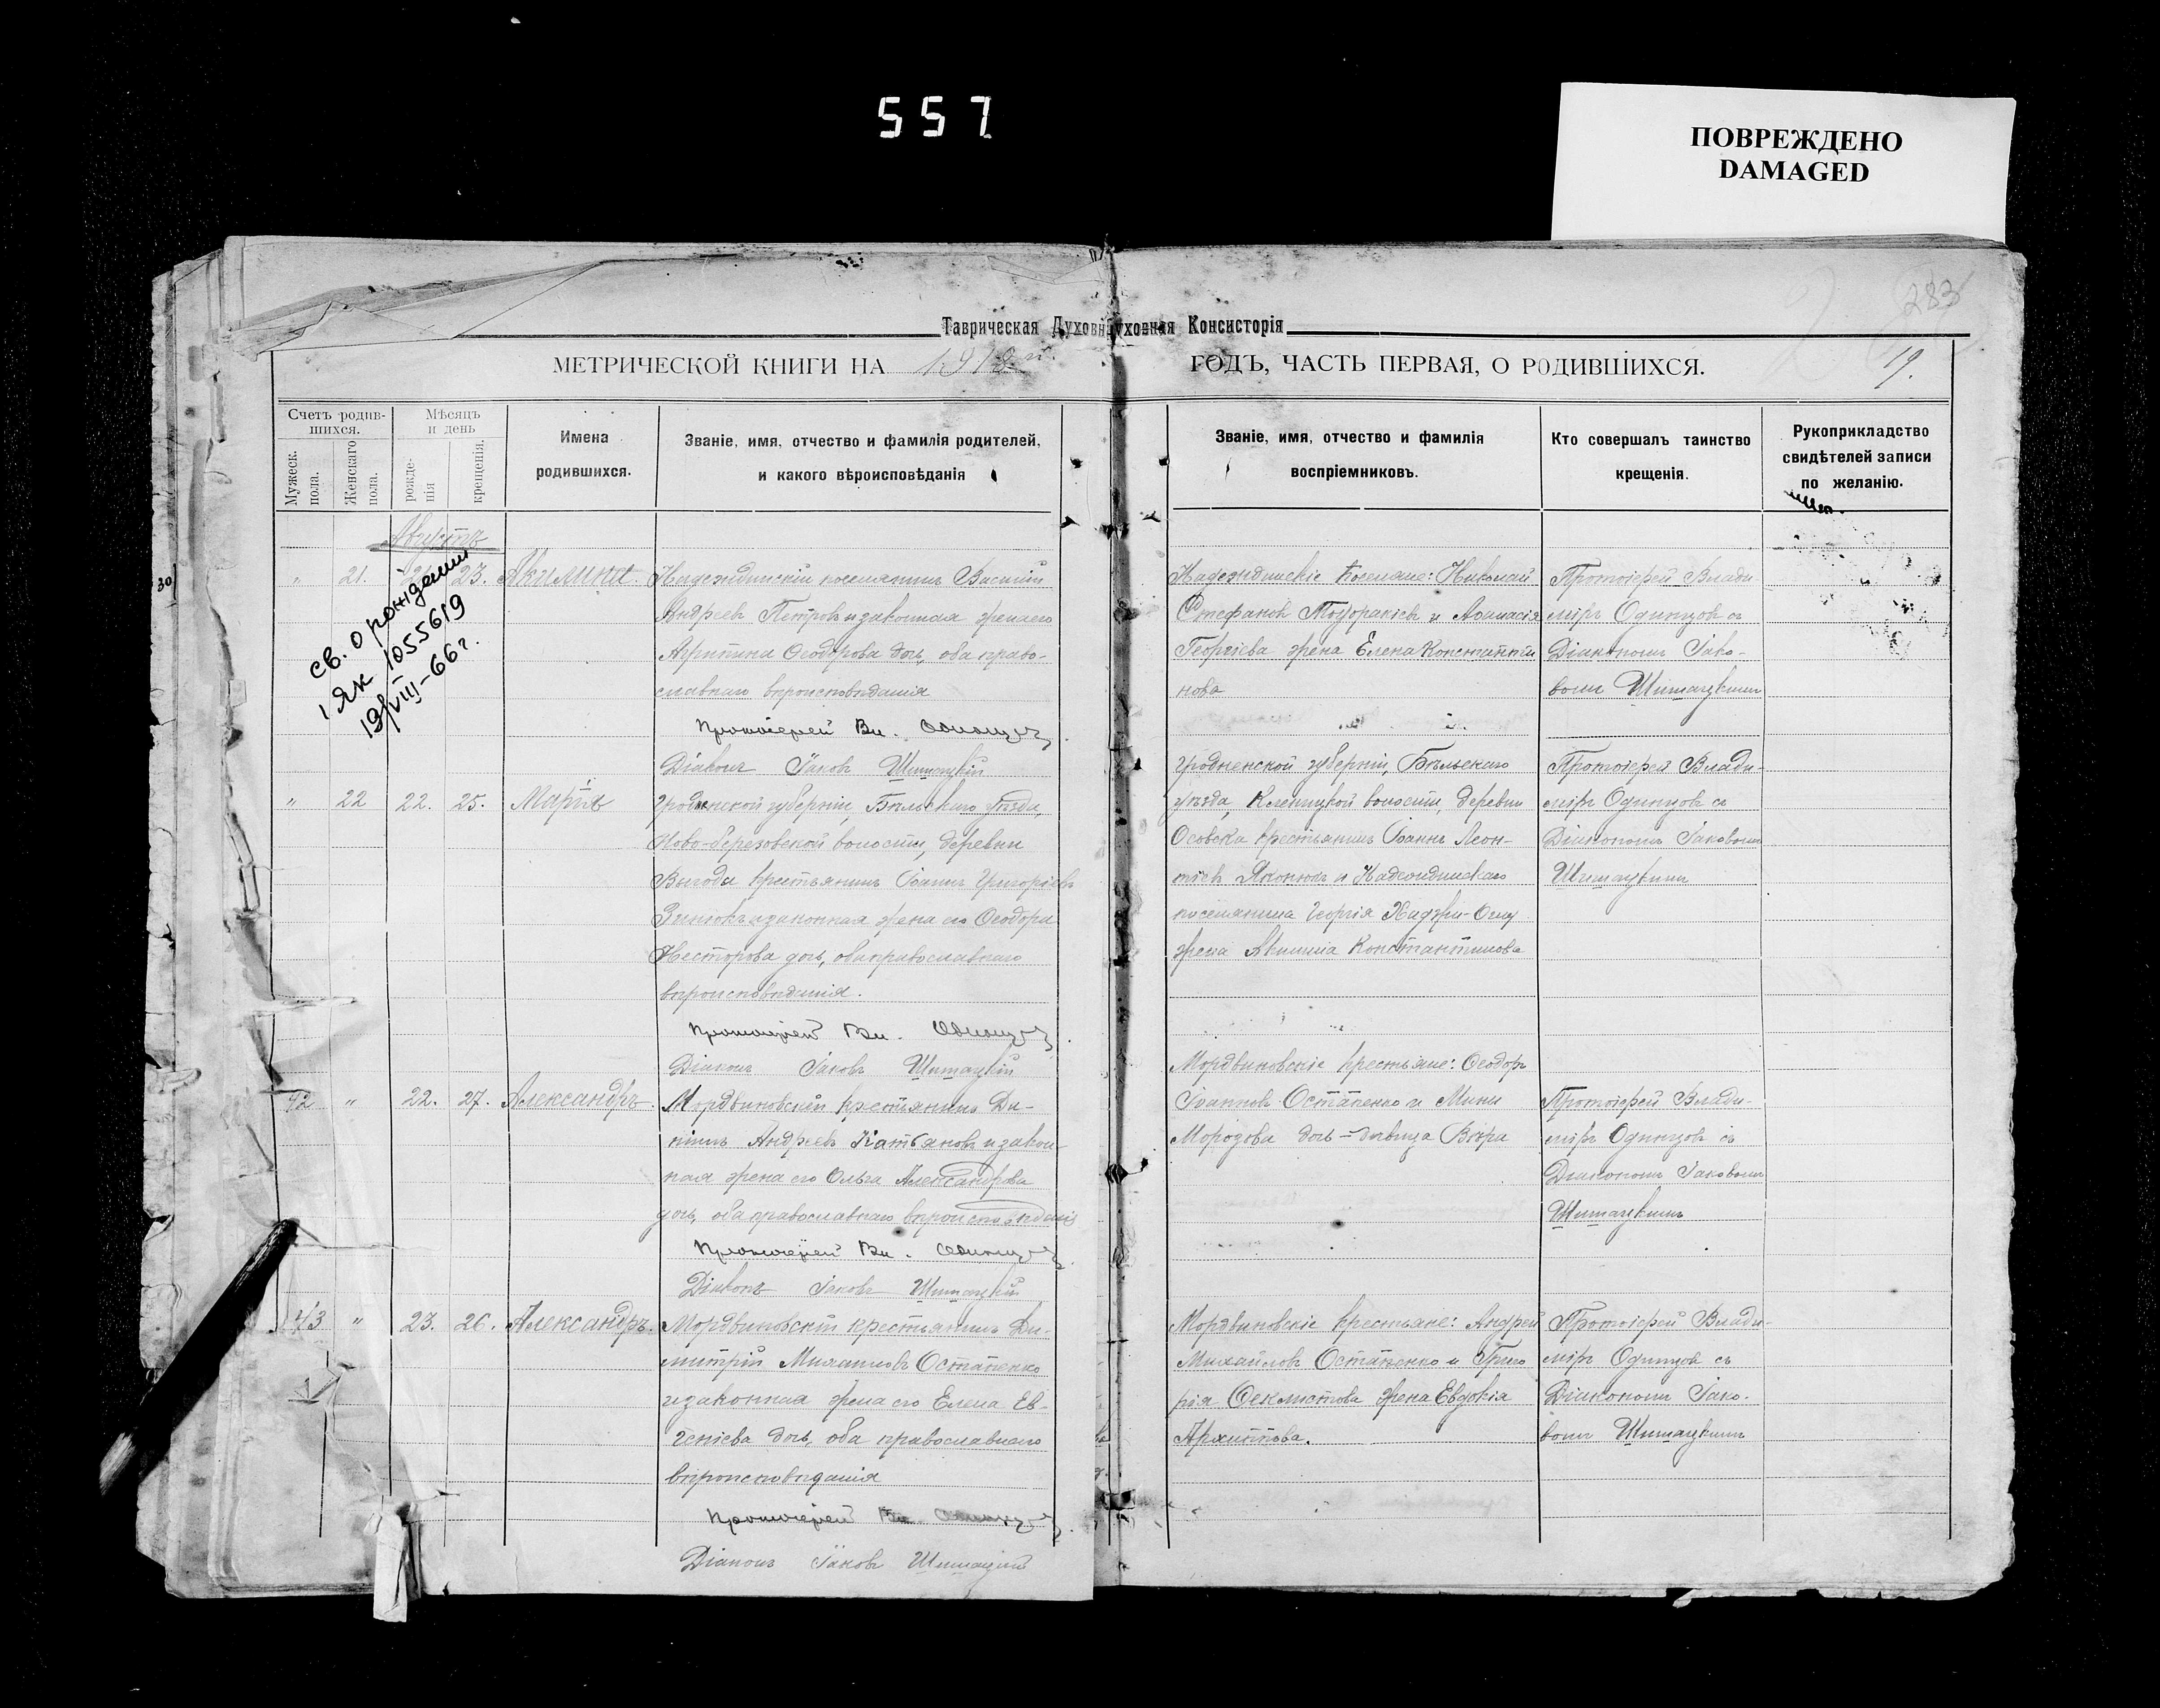 557
ПОВРЕЖДЕНО
DAMAGED
283
Таврическая Духовн
уховная Консисторія
МЕТРИЧЕСКОЙ КНИГИ НА 1918 й.
ГОДЪ, ЧАСТЬ ПЕРВАЯ, О РОДИВШИХСЯ.
19.
Счетъ родив-
шихся.
Мужеск.
пола.
Женскаго
пола.
Мѣсяцъ
и день
рожде-
нія
крещенія.
Имена
родившихся.
Званіе, имя, отчество и фамилія родителей,
и какого вѣроисповѣданія
Званіе, имя, отчество и фамилія
воспріемниковъ.
Кто совершалъ таинство
крещенія.
Рукоприкладство
свидѣтелей записи
по желанію.
30
Августъ
св. о рождении
1 ЯК 1055619
19/VIII-66 г.
" 21. 21. 23. Акилина.
Надеждинскій поселянинъ Василій
Андреевъ Петровъ и законная жена его
Агрипина Ѳеодорова дочь, оба право-
славнаго вѣроисповѣданія
Протоіерей Вл. Одинцовъ
Діаконъ Іаковъ Шишацкій
Надеждинскіе поселяне: Николай
Стефановъ и Аѳанасія
Георгіева жена Елена Константи
нова
Протоіерей Влади-
міръ Одинцовъ съ
Діакономъ Іако-
вомъ Шишацкимъ
" 22 22. 25. Марія
Гродненской губерніи, Бѣльскаго уѣзда,
Ново-березовской волости, деревни
Выгода крестьянинъ Іоаннъ Григоріевъ
и законная жена его Ѳеодора
Несторова дочь, оба православнаго
вѣроисповѣданія.
Протоіерей Вл. Одинцовъ
Діаконъ Іаковъ Шишацкій
Гродненской губерніи, Бѣльскаго
уѣзда, волости, деревни
Осовка крестьянинъ Іоаннъ Леон-
тіевъ и Надеждинскаго
поселянина Георгія Хаджи-Оглу
жена Акилина Константинова
Протоіерей Влади-
міръ Одинцовъ съ
Діакономъ Іаковомъ
Шишацкимъ
42 " 22. 27. Александръ.
Мордвиновскій крестьянинъ Да-
ніилъ Андреевъ Катьяновъ и закон-
ная жена его Ольга Александрова
дочь, оба православнаго вѣроисповѣданія
Протоіерей Вл. Одинцовъ
Діаконъ Іаковъ Шишацкій
Мордвиновскіе крестьяне: Ѳеодоръ
Іоанновъ Остапенко и Мины
Морозова дочь-дѣвица Вѣра
Протоіерей Влади-
міръ Одинцовъ съ
Діакономъ Іаковомъ
Шишацкимъ
43 " 23. 26. Александръ.
Мордвиновскій крестьянинъ Ди-
митрій Михаиловъ Остапенко
и законная жена его Елена Ев-
геніева дочь, оба православнаго
вѣроисповѣданія
Протоіерей Вл. Одинцовъ
Діаконъ Іаковъ Шишацкій
Мордвиновскіе крестьяне: Андрей
Михайловъ Остапенко и Григо
рія Ѳеклистова жена Евдокія
Архиппова.
Протоіерей Влади-
міръ Одинцовъ съ
Діакономъ Іако-
вомъ Шишацкимъ